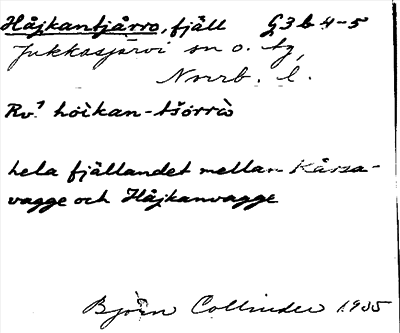 Håjkantjårro, fjäll G3b 4-5
Jukkasjärvi sn o. tg,
Norrb. l.
Rv.? hoìkan-tšorrò
hela fjällandet mellan Kårsa-
vagge och Håjkanvagge
Björn Collinder 1935